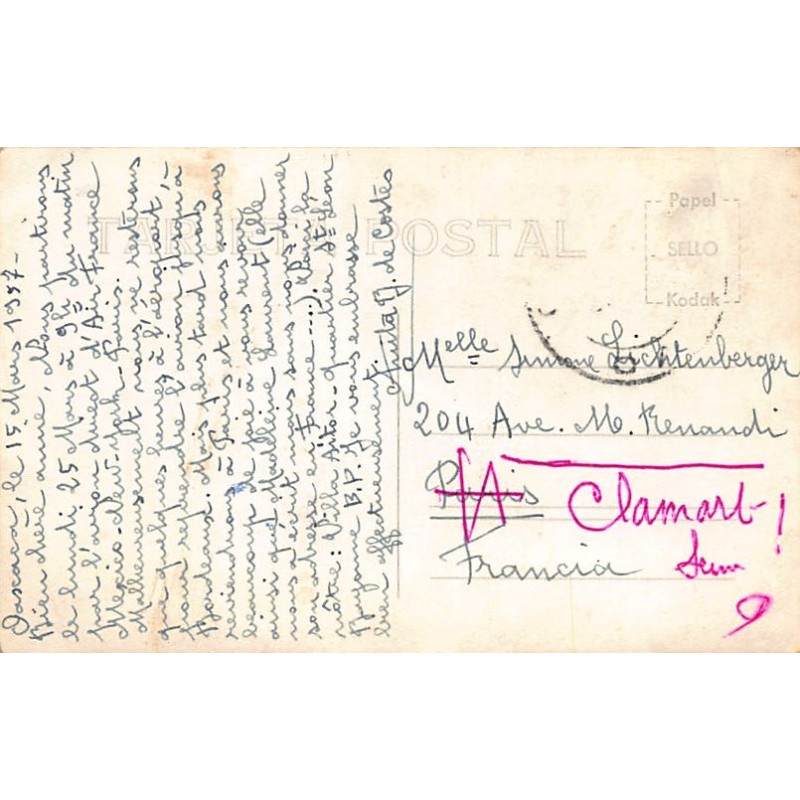 TARJETA POSTAL
Papel
SELLO
Kodak
Oaxaca, le 15 Mars 1957-
Bien chère amie, Nous partirons
le lundi 25 Mars à 9h. du matin
par l'avion direct d'Air France
Mexico-New-York-Paris.
Malheureusement nous ne resterons
que quelques heures à l'aéroport,
pour reprendre l'avion jusqu'à
Bordeaux. Mais plus tard nous
reviendrons à Paris, et nous aurons
beaucoup de joie à vous revoir
ainsi que Madeleine Laurent (elle
nous a écrit sans nous donner
son adresse en France ....). Voici la
nôtre: Villa quartier St Léon
Bayonne B.P. Je vous embrasse
bien affectueusement
Anita M. de Costes
Melle Simone Lichtenberger
204 Ave. M. Renandi
Paris
Clamart- !
Francia